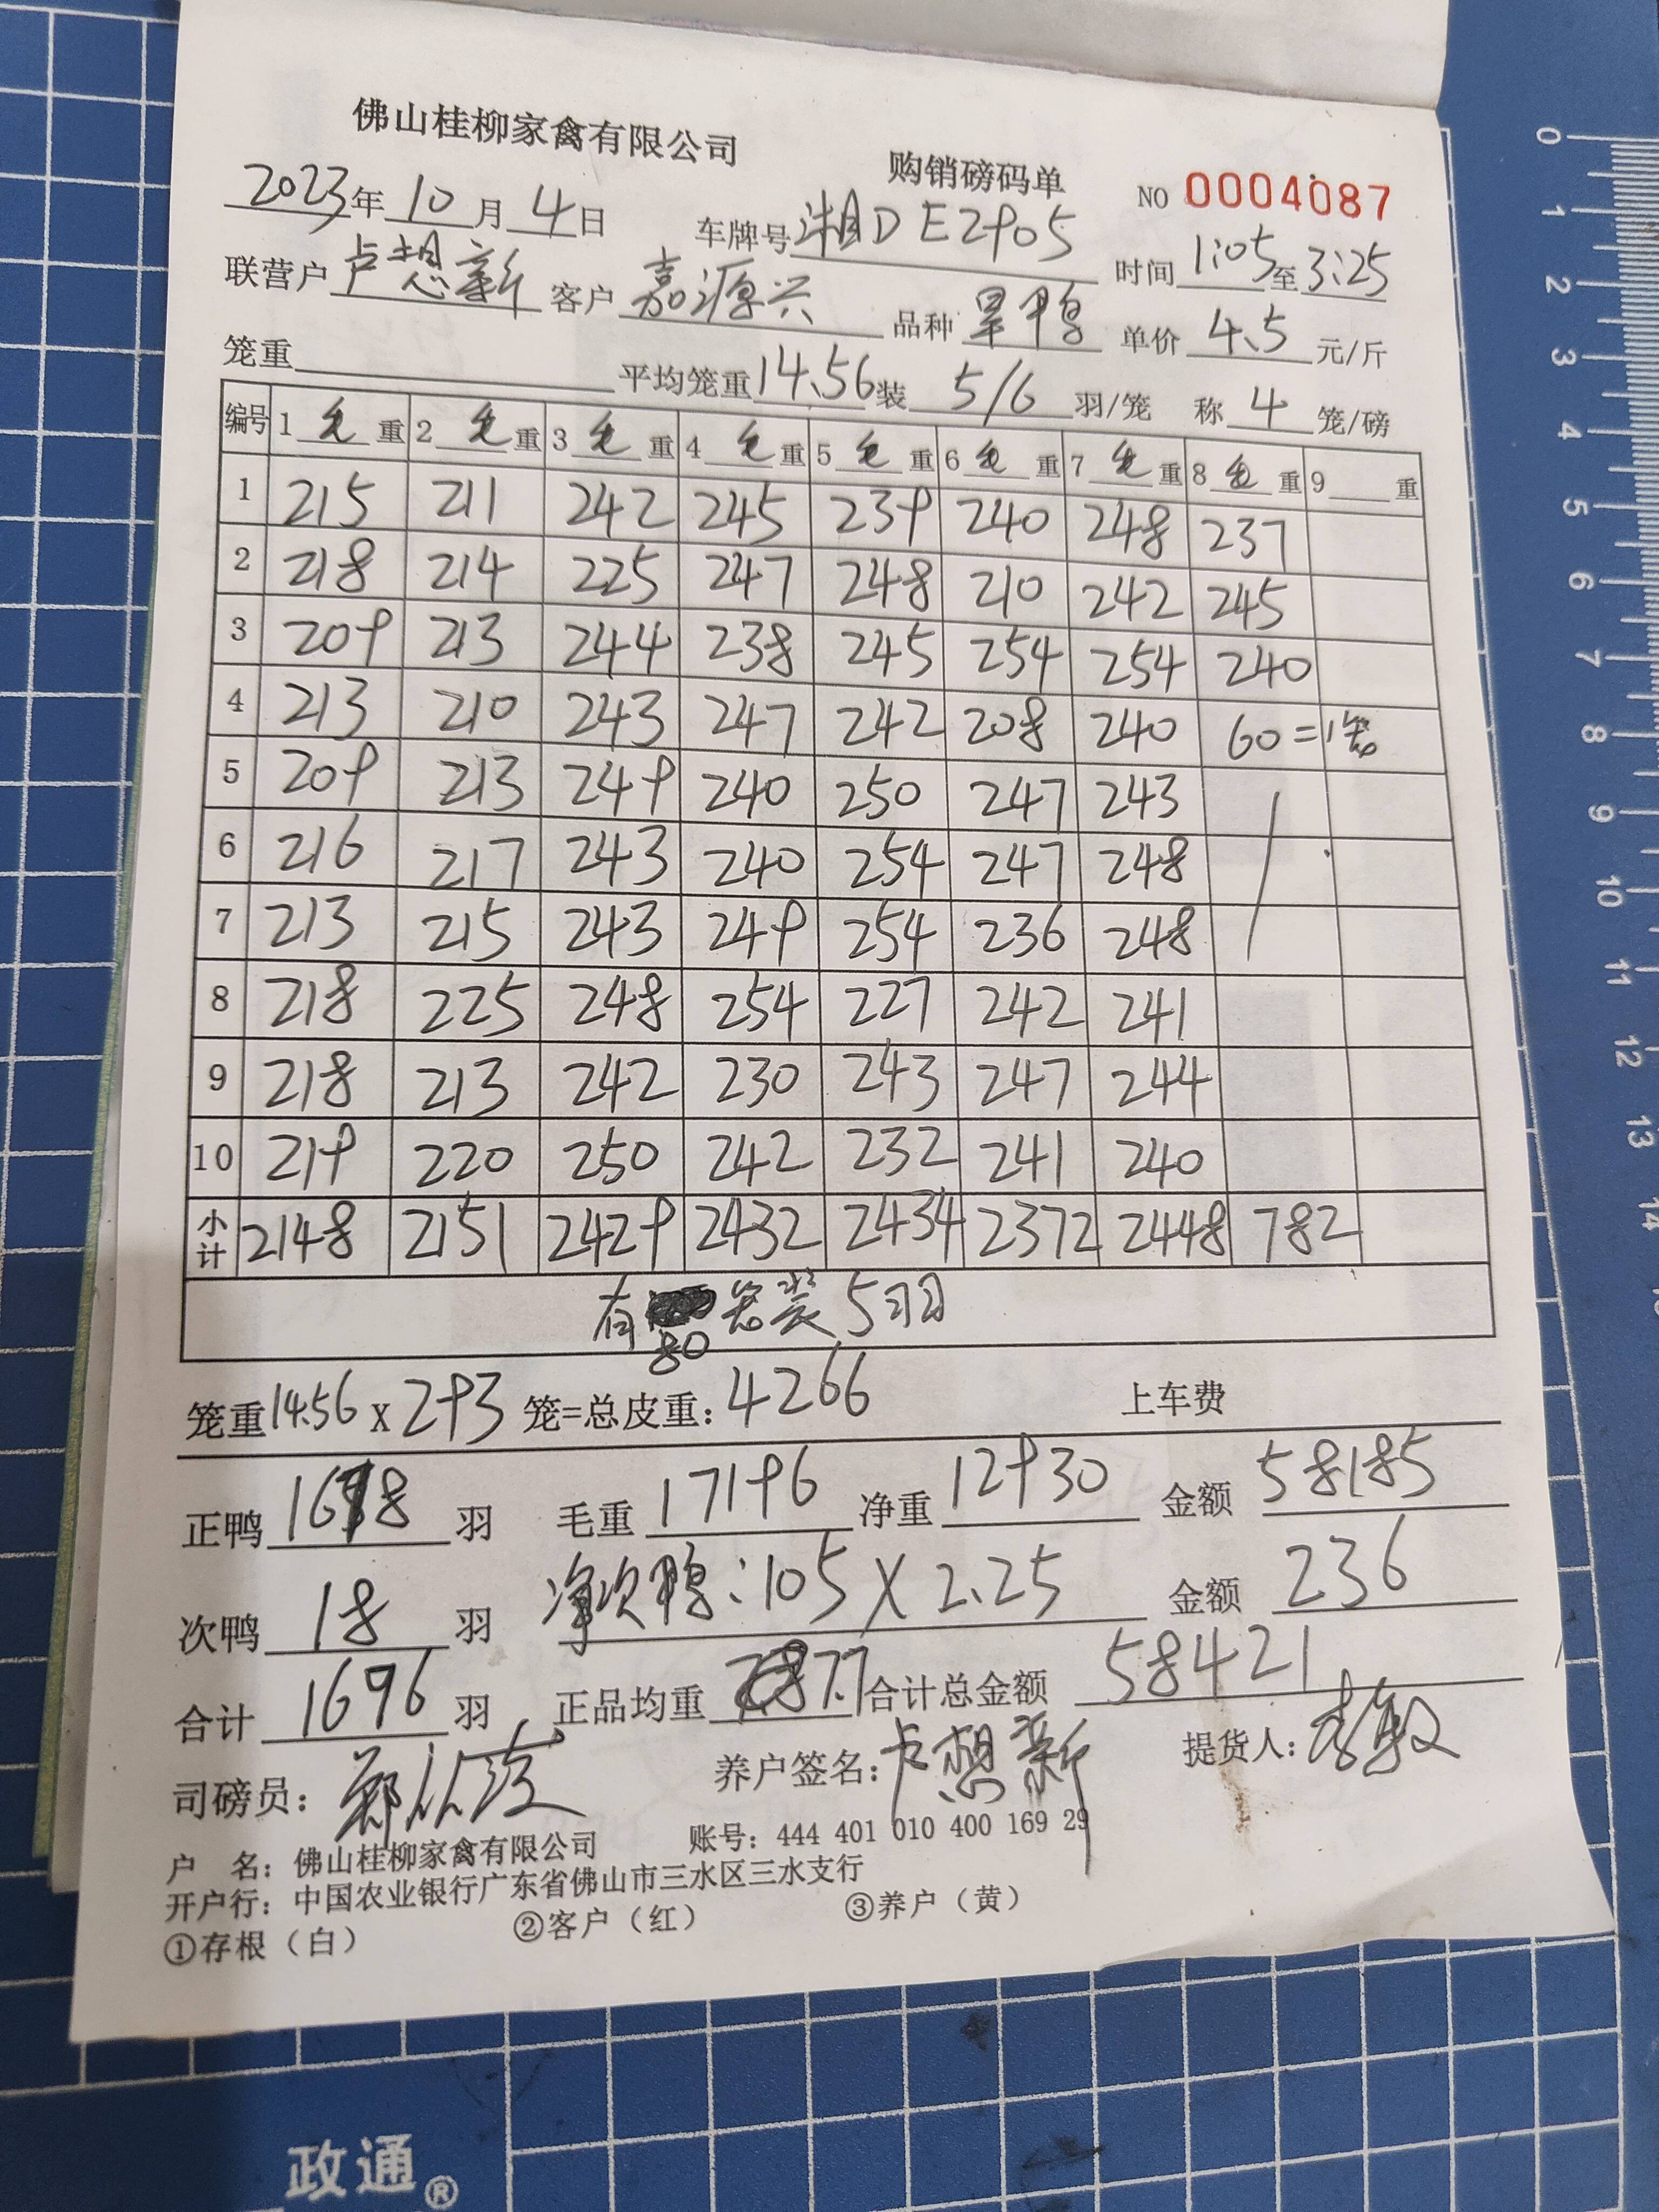 佛山桂柳家禽有限公司 购销磅码单 NO 0004087
2023年10月4日 车牌号湘D E2905 时间1:05至3:25
联营户卢想新 客户嘉源兴 品种旱鸭 单价4.5元/斤
笼重 平均笼重14.56装5/6羽/笼 称4笼/磅
编号 1毛重 2毛重 3毛重 4毛重 5毛重 6毛重 7毛重 8毛重 9重
1 215 211 242 245 239 240 248 237
2 218 214 225 247 248 210 242 245
3 209 213 244 238 245 254 254 240
4 213 210 243 247 242 208 240 60=1笼
5 209 213 249 240 250 247 243
6 216 217 243 240 254 247 248
7 213 215 243 249 254 236 248
8 218 225 248 254 227 242 241
9 218 213 242 230 243 247 244
10 219 220 250 242 232 241 240
小计 2148 2151 2429 2432 2434 2372 2448 782
有80笼装5羽
笼重14.56x293笼=总皮重:4266 上车费
正鸭1678羽 毛重17196净重12930 金额58185
次鸭18羽 净次鸭:105X2.25 金额236
合计1696羽 正品均重7.7合计总金额58421
司磅员: 养户签名:卢想新 提货人:李敏
户名:佛山桂柳家禽有限公司 账号:444 401 010 400 169 29
开户行:中国农业银行广东省佛山市三水区三水支行
①存根（白） ②客户（红） ③养户（黄）
0
1
2
3
4
5
6
7
8
9
10
11
12
13
14
政通®